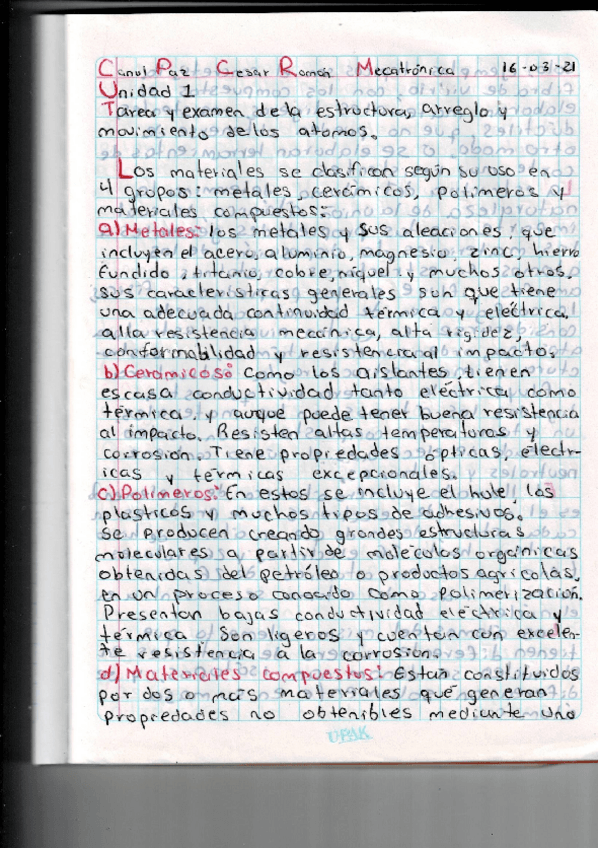 Canul Paz Cesar Román Mecatrónica 16-03-21
Unidad 1
Tarea y examen de la estructura, arreglo y
movimiento de los atomos.
Los materiales se clasifican según su uso en
4 gropos: metales, cerámicos, polimeros y
materiales compuestos:
a) Metales: los metales y sus aleaciones, que
incluyen el acero, aluminio, magnesio, zinc, hierro
fundido, titanio, cobre, niquel y muchos otros,
sus caracteristicas generales son que tiene
una adecuada continuidad térmica y eléctrica,
alla resistencia mecánica, alta rigidez,
conformabilidad y resistencia al impacto.
b) Ceramicos: Como los aislantes, tienen
escasa conductividad tanto eléctrica como
térmica y auque puede tener buena resistencia
al impacto. Resisten altas temperaturas y
corrosion. Tiene propriedades ópticas, eléctr-
icas y térmicas excepcionales.
c) Polímeros: En estos se incluye el hule, los
plásticos y muchos tipos de adhesivos.
se producen creando grandes estructuras
moleculares a partir de moléculos orgánicas
obtenidas del petróleo o productos agrícolas,
en un proceso conocido como polimerización.
Presentan bajas conductividad eléctrica y
térmica. Son ligeros y cuentan con excelen-
te resistencia a la corrosion.
d) Materiales compuestos: Estan constituidos
por dos o más materiales que generan
propriedades no obtenibles mediante uno